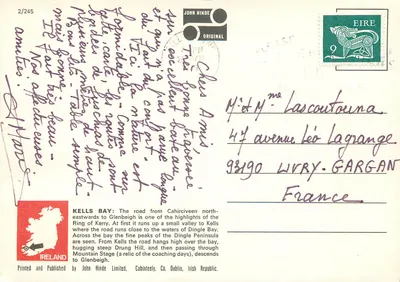 2/245
JOHN HINDE
ORIGINAL
EIRE
9
Chers Amis,
Très bonne traversée
un excellent bateau,
et qui n'a pas parue longue
du fait du confort.
Ici la nature est
formidable. Comme une
belle carte les routes sont
bordées de haies de
et bonne.
Il fait très beau.
Nos affectueuses
amitiés.
Mr et Mme Lascoutouna
47 avenue Léo Lagrange
93190 LIVRY-GARGAN
France
IRELAND
KELLS BAY: The road from Cahirciveen north-
eastwards to Glenbeigh is one of the highlights of the
Ring of Kerry. At first it runs up a small valley to Kells
where the road runs close to the waters of Dingle Bay.
Across the bay the fine peaks of the Dingle Peninsula
are seen. From Kells the road hangs high over the bay,
hugging steep Drung Hill, and then passing through
Mountain Stage (a relic of the coaching days), descends
to Glenbeigh.
Printed and Published by John Hinde Limited, Cabinteely, Co. Dublin, Irish Republic.